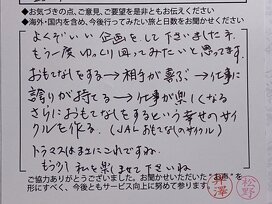 ●お気づきの点、ご意見、ご要望を是非ともお伝えください
●海外・国内を含め、今後行ってみたい旅と日数をお聞かせください。
よくぞいい企画をして下さいました。
もう一度ゆっくり回ってみたいと思ってます。
おもてなしをする→相手が喜ぶ→仕事に
誇りが持てる→仕事が楽しくなる
さらにおもてなしをするという幸せのサイ
クルを作る。(JALおもてなしのサイクル)
トラマスはまさにこれですね。
もっともっと私を楽しませて下さいね
ご協力ありがとうございました。お聞かせいただいた"お声"を
形にすべく、今後ともサービス向上に努めて参ります。
井澤
松野